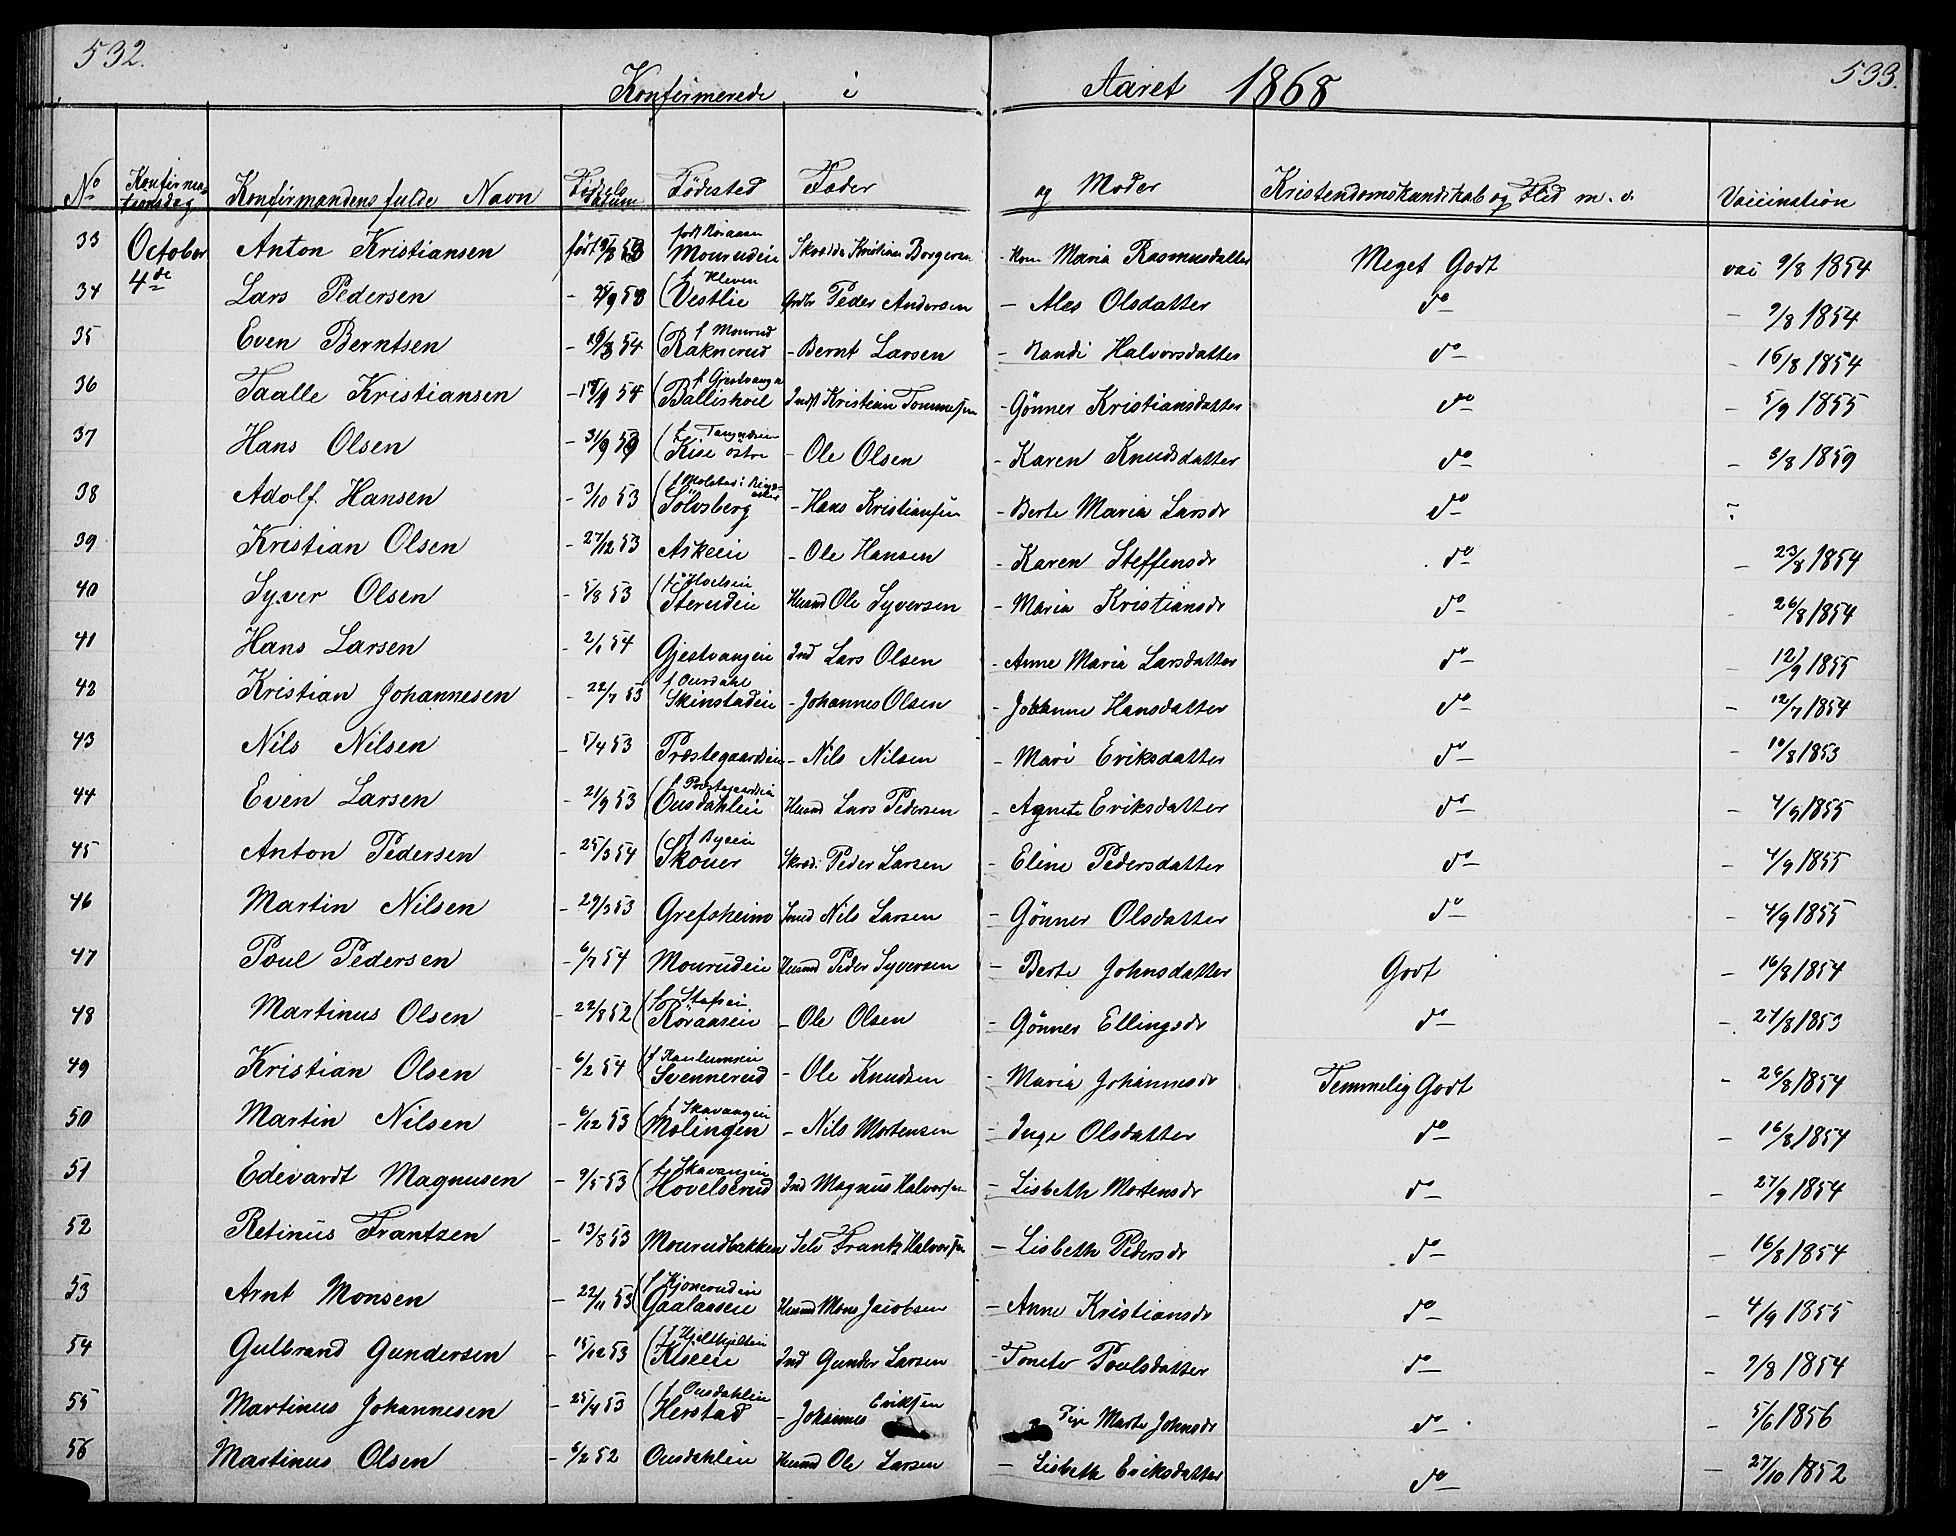 532.
533.
Konfirmerede i Aaret 1868
No Konfirma-tionsdag Konfirmandens fulde Navn Fødselsdatum Fødested Fader og Moder Kristendomskundskab og Flid m. v. Vaccination
33 October 4de Anton Kristiansen født Mourudeie Kristian Borgersen Kone Maria Rasmusdatter Meget Godt vac 9/8 1854
34 Lars Pedersen - (f Kleven Vestlie Peder Andersen - Ales Olsdatter do - 9/8 1854
35 Even Berntsen - 54 (f Mourud Raknerud - Bernt Larsen - Randi Halvorsdatter do - 16/8 1854
36 Taalle Kristiansen - 54 Ballishoil Indst Kristian Tommesen - Gönner Kristiansdatter do - 5/9 1855
37 Hans Olsen - Kise östre - Ole Olsen - Karen Knudsdatter do - 3/8 1859
38 Adolf Hansen - 3/10 53 Sölvsberg - Hans Kristiansen - Berte Maria Larsdr do -
39 Kristian Olsen - 27/12 53 Askeie - Ole Hansen - Karen Steffensdr do - 23/8 1854
40 Syver Olsen - 5/8 53 (f Hoelseie Sterudeie Husmd Ole Syversen - Maria Kristiansdr do - 26/8 1854
41 Hans Larsen - 2/1 54 Gjestvangeie Ind Lars Olsen - Anne Maria Larsdatter do - 12/9 1855
42 Kristian Johannesen - 22/7 53 f Ousdahl Skinstadeie - Johannes Olsen - Johanne Hansdatter do - 12/7 1854
43 Nils Nilsen - 5/4 53 Præstegaardseie - Nils Nilsen - Mari Eriksdatter do - 10/8 1853
44 Even Larsen - 21/9 53 (f Præstegaardseie Ousdahleie Husmd Lars Pedersen - Agnete Eriksdatter do - 4/9 1855
45 Anton Pedersen - 25/3 54 (f Byeie Skouer Skræd. Peder Larsen - Eline Pedersdatter do - 4/9 1855
46 Martin Nilsen - 29/3 53 Grefsheim Smed Nils Larsen - Gönner Olsdatter do - 4/9 1855
47 Poul Pedersen - 6/7 54 Mourudeie Husmd Peder Syversen - Berte Johnsdatter Godt - 16/8 1854
48 Martinus Olsen - 22/8 52 Röraaseie - Ole Olsen - Gönner Ellingsdr do - 27/8 1853
49 Kristian Olsen - 6/2 54 Svennerud - Ole Knudsen - Maria Johannesdr Temmelig Godt - 26/8 1854
50 Martin Nilsen - 6/12 53 (f Skavangeie Molingen - Nils Mortensen - Inge Olsdatter do - 16/8 1854
51 Edevardt Magnusen - 9/5 53 (f Skavangeie Hovelserud Ind Magnus Halvorsen - Lisbeth Mortensdr do - 27/9 1854
52 Retinus Frantzen - 13/8 53 Mourudbakken Selv Frantz Halvorsen - Lisbeth Pedersdr do - 16/8 1854
53 Arnt Monsen - 22/11 53 (f Kjonerudeie Gaalaaseie Husmd Mons Jacobsen - Anne Kristiansdr do - 4/9 1855
54 Gulbrand Gundersen - 15/12 53 Ind Gunder Larsen - Tonete Poulsdatter do - 9/8 1854
55 Martinus Johannesen - 25/4 53 (f Ousdahleie Herstad - Johannes Eriksen Pige Marte Johnsdr do - 5/6 1856
56 Martinus Olsen - 6/2 52 Ousdahleie Husmd Ole Larsen - Lisbeth Eriksdatter do - 27/10 1852